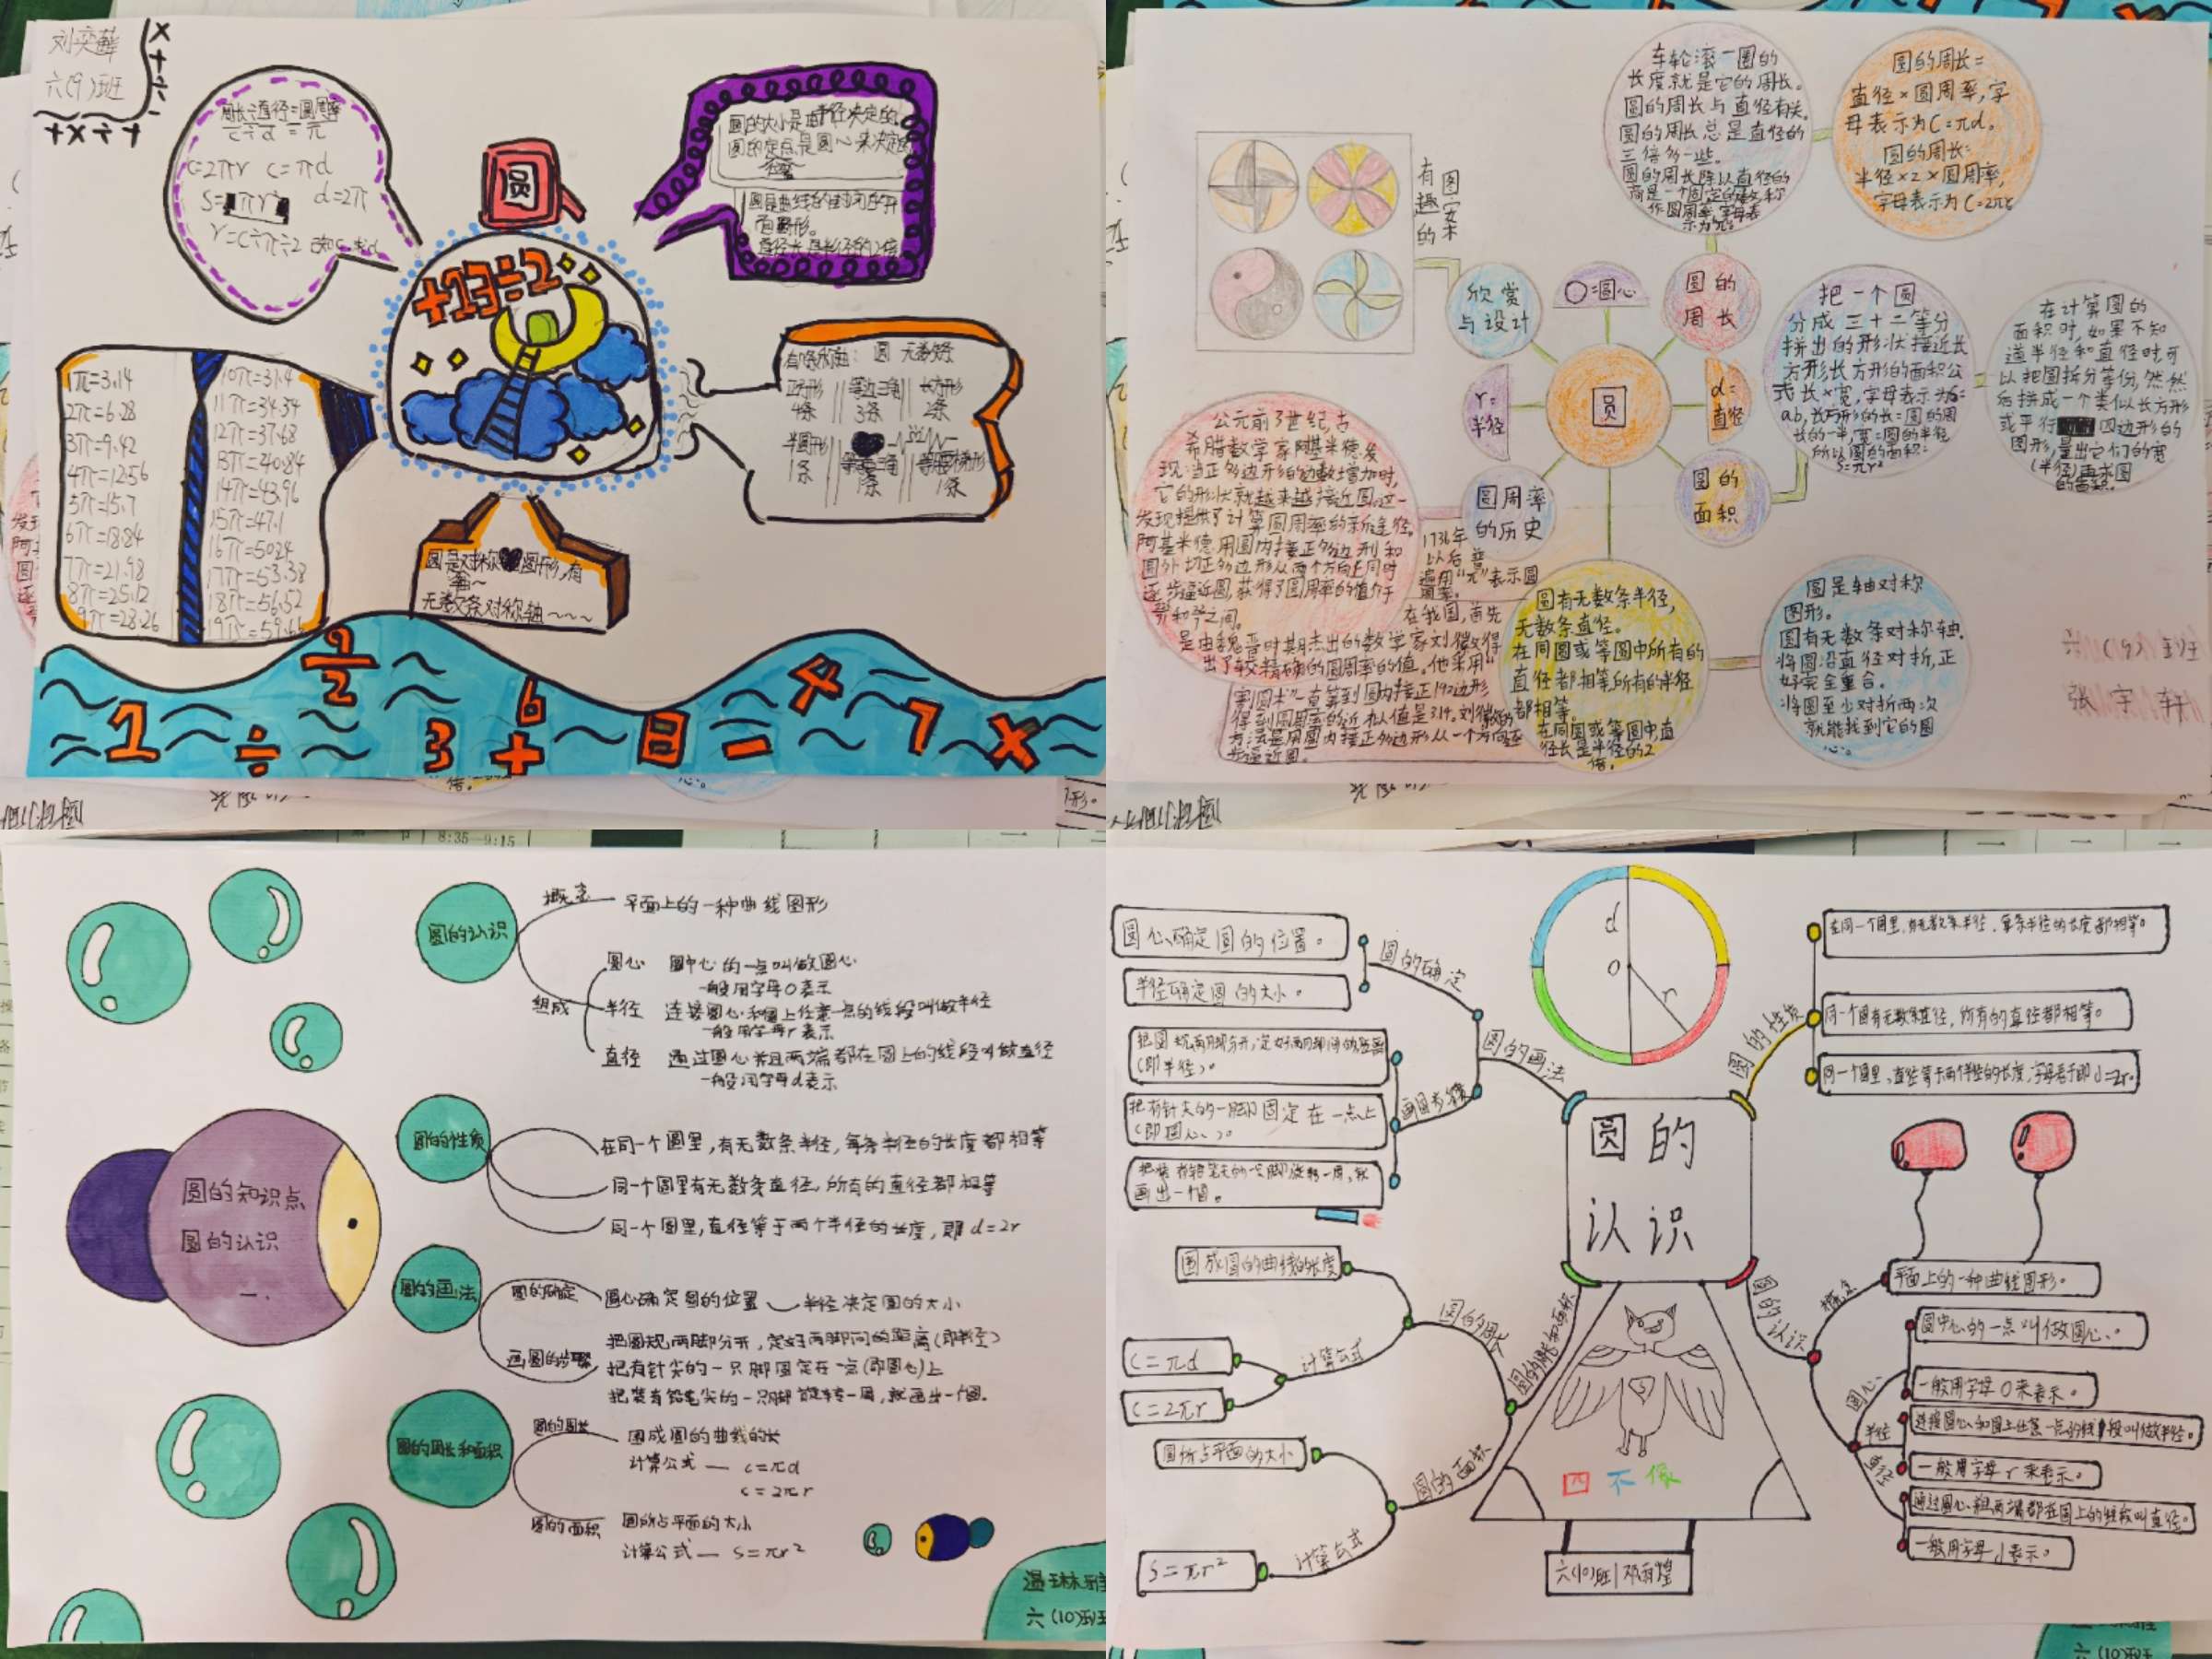 刘奕藓
六(9)班
周长÷直径=圆周率
C÷d=π
C=2πr C=πd
S=πr² d=2π
r=C÷π÷2
圆
圆的大小是由半径决定的。
圆的定点是圆心来决定的
+13÷2
1π=3.14
2π=6.28
3π=9.42
4π=12.56
5π=15.7
6π=18.84
7π=21.98
8π=25.12
9π=28.26
10π=31.4
11π=34.54
12π=37.68
13π=40.84
14π=43.96
15π=47.1
16π=50.24
17π=53.38
18π=56.52
圆 无数条
正方形
4条
等边三角
3条
长方形
2条
半圆形
1条
等腰三角
1条
等腰梯形
1条
圆是对称图形,有
无数条对称轴~~~
有趣的
图案
欣赏
与设计
O=圆心
圆的
周长
r=
半径
圆
d=
直径
圆周率
的历史
圆的
面积
车轮滚一圈的
长度就是它的周长。
圆的周长与直径有关。
圆的周长总是直径的
三倍多一些。
圆的周长除以直径的
商是一个固定的数称
作圆周率,字母表
示为π。
圆的周长=
直径×圆周率,字
母表示为C=πd。
圆的周长=
半径×2×圆周率,
字母表示为C=2πr
把一个圆
分成三十二等分
拼出的形状接近长
方形,长方形的面积公
式长×宽,字母表示为S=
ab,长方形的长=圆的周
长的一半,宽=圆的半径
所以圆的面积=
S=πr²
在计算圆的
面积时,如果不知
道半径和直径时,可
以把圆拆分等份,然然
后拼成一个类似长方形
或平行四边形的
图形,量出它们的宽
(半径)再求圆
的面积。
公元前3世纪,古
希腊数学家阿基米德发
现:当正多边形的边数增加时,
它的形状就越来越接近圆,这一
发现提供了计算圆周率的新途径。
阿基米德用圆内接正多边形和
圆外切正多边形从两个方向上同时
逐步逼近圆,获得了圆周率的值介于
1736年
以后普
遍用“π”表示圆
周率。
在我国,首先
是由魏晋时期杰出的数学家刘徽得
出了较精确的圆周率的值。他采用“
割圆术”一直算到圆内接正192边形,
得到圆周率的近似值是3.14。刘徽的
方法是用圆内接正多边形从一个方向逐
步逼近圆。
圆有无数条半径,
无数条直径。
在同圆或等圆中所有的
直径都相等所有的半径
都相等。
在同圆或等圆中,直
径长是半径的2
倍。
圆是轴对称
图形。
圆有无数条对称轴.
将圆沿直径对折,正
好完全重合。
将圆至少对折两次
就能找到它的圆
心。
六(9)班
张宇轩
8:35—9:15
圆的知识点
圆的认识
一.
圆的认识
概念 平面上的一种曲线图形
组成
圆心 圆中心的一点叫做圆心
一般用字母O表示
半径 连接圆心和圆上任意一点的线段叫做半径
一般用字母r表示
直径 通过圆心并且两端都在圆上的线段叫做直径
一般用字母d表示
圆的性质
在同一个圆里,有无数条半径,每条半径的长度都相等
同一个圆里有无数条直径,所有的直径都相等
同一个圆里,直径等于两个半径的长度,即d=2r
圆的画法
圆的确定 圆心确定圆的位置 半径决定圆的大小
画圆的步骤
把圆规两脚分开,定好两脚间的距离(即半径)
把有针尖的一只脚固定在一点(即圆心)上
把装有铅笔尖的一只脚旋转一周,就画出一个圆.
圆的周长和面积
圆的周长 围成圆的曲线的长
计算公式 — c=πd
c=2πr
圆的面积 圆所占平面的大小
计算公式 — S=πr²
温琳雅
六(10)班
d
O
r
圆的
认识
圆的画法
圆的确定
圆心确定圆的位置。
半径确定圆的大小。
画圆步骤
把圆规两脚分开,定好两脚间的距离
(即半径)。
把有针尖的一脚固定在一点上
(即圆心)。
画出一个圆。
圆的性质
在同一个圆里,有无数条半径,每条半径的长度都相等。
同一个圆有无数条直径,所有的直径都相等。
圆的周长和面积
圆的周长
围成圆的曲线的长度
计算公式
C=πd
C=2πr
圆的面积
圆所占平面的大小
计算公式
S=πr²
圆的认识
概念
平面上的一种曲线图形。
圆心
圆中心的一点叫做圆心。
一般用字母O来表示。
半径
连接圆心和圆上任意一点的线段叫做半径。
一般用字母r来表示。
直径
通过圆心并且两端都在圆上的线段叫直径。
一般用字母d表示。
四不像
六(10)班